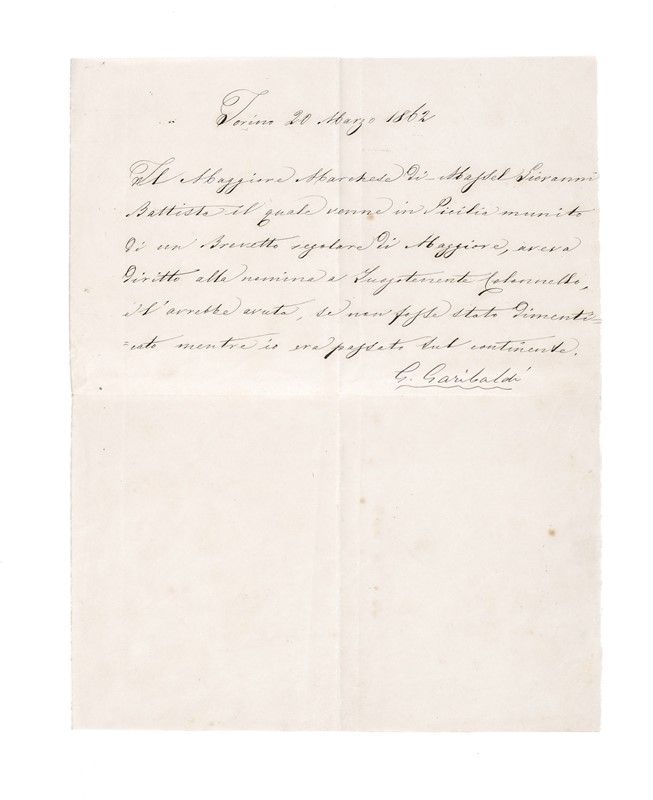 Torino 20 Marzo 1862
Il Maggiore Marchese di Massel Giovanni
Battista il quale venne in Sicilia munito
di un Brevetto regolare di Maggiore, aveva
diritto alla nomina a Luogotenente Colonnello,
e l'avrebbe avuta, se non fosse stato dimenti=
=cato mentre io era passato sul continente.
G. Garibaldi